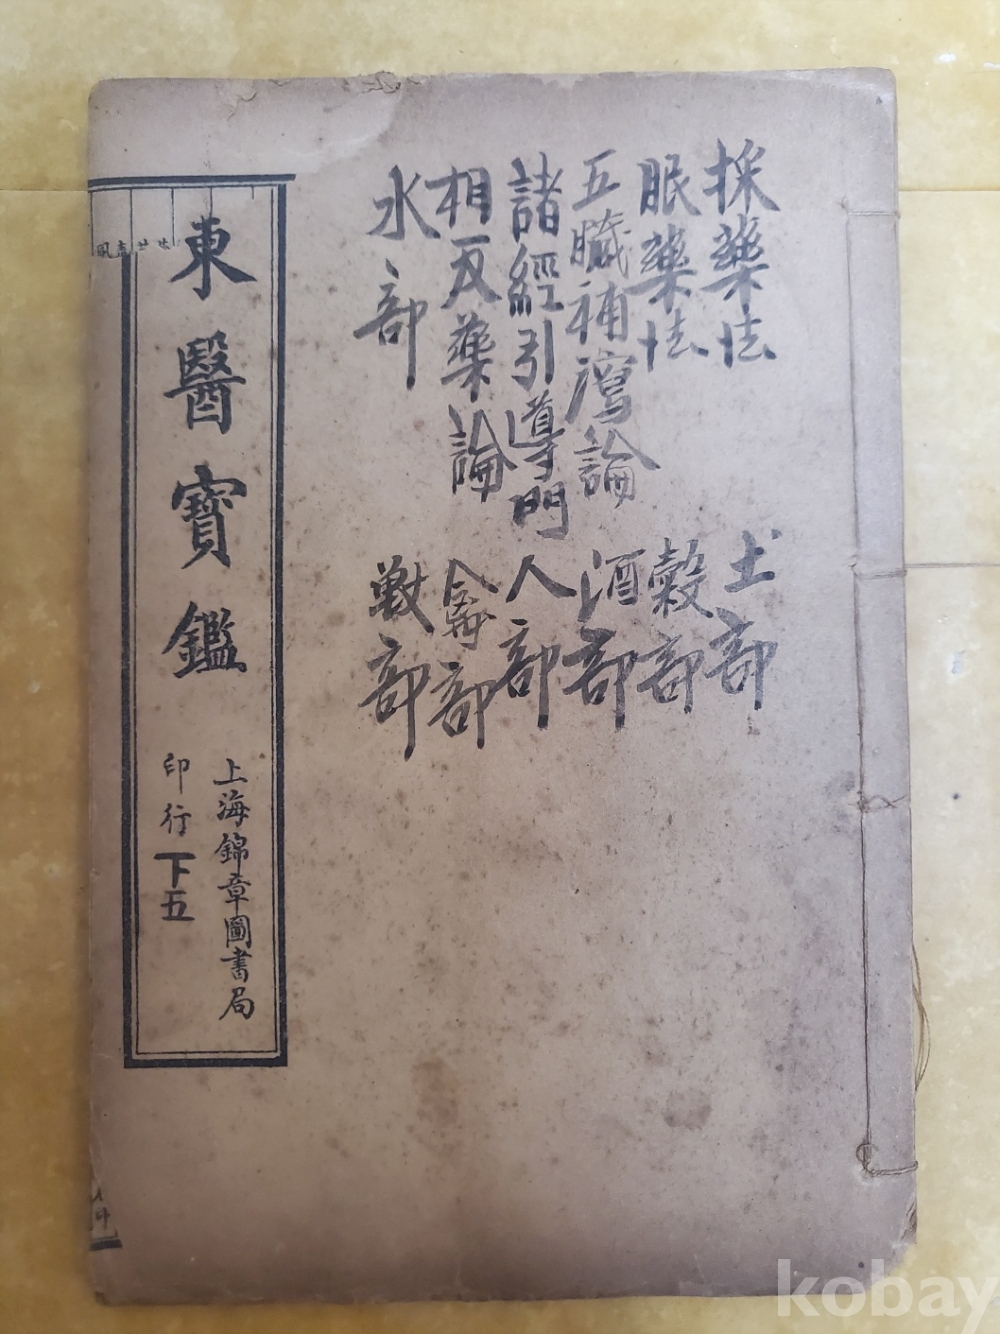 採藥法
眠藥法
五臟補瀉論
諸經引導門
相反藥論
水部
土部
穀部
酒部
人部
禽部
獸部
東醫寶鑑
上海錦章圖書局
印行 下五
kobay